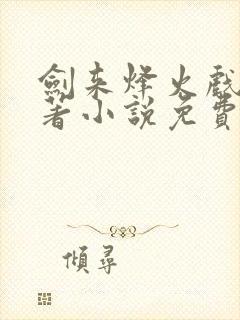 劍来烽火戲
著小說免費
傾尋